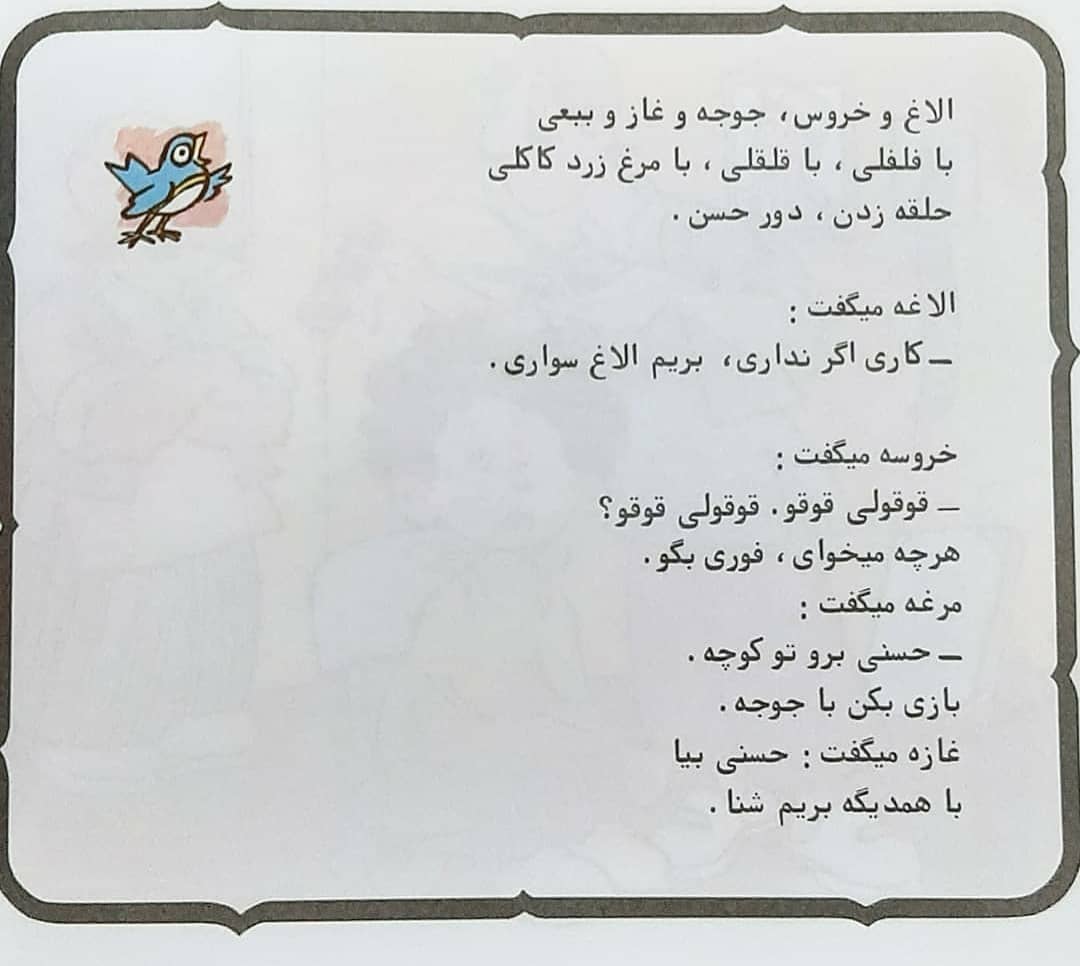 الاغ و خروس، جوجه و غاز و ببعی
با فلفلی، با قلقلی، با مرغ زرد کاکلی
حلقه زدن، دور حسن.
الاغه میگفت:
ــ کاری اگر نداری، بریم الاغ سواری.
خروسه میگفت:
ــ قوقولی قوقو. قوقولی قوقو؟
هرچه میخوای، فوری بگو.
مرغه میگفت:
ــ حسنی برو تو کوچه.
بازی بکن با جوجه.
غازه میگفت: حسنی بیا
با همدیگه بریم شنا.